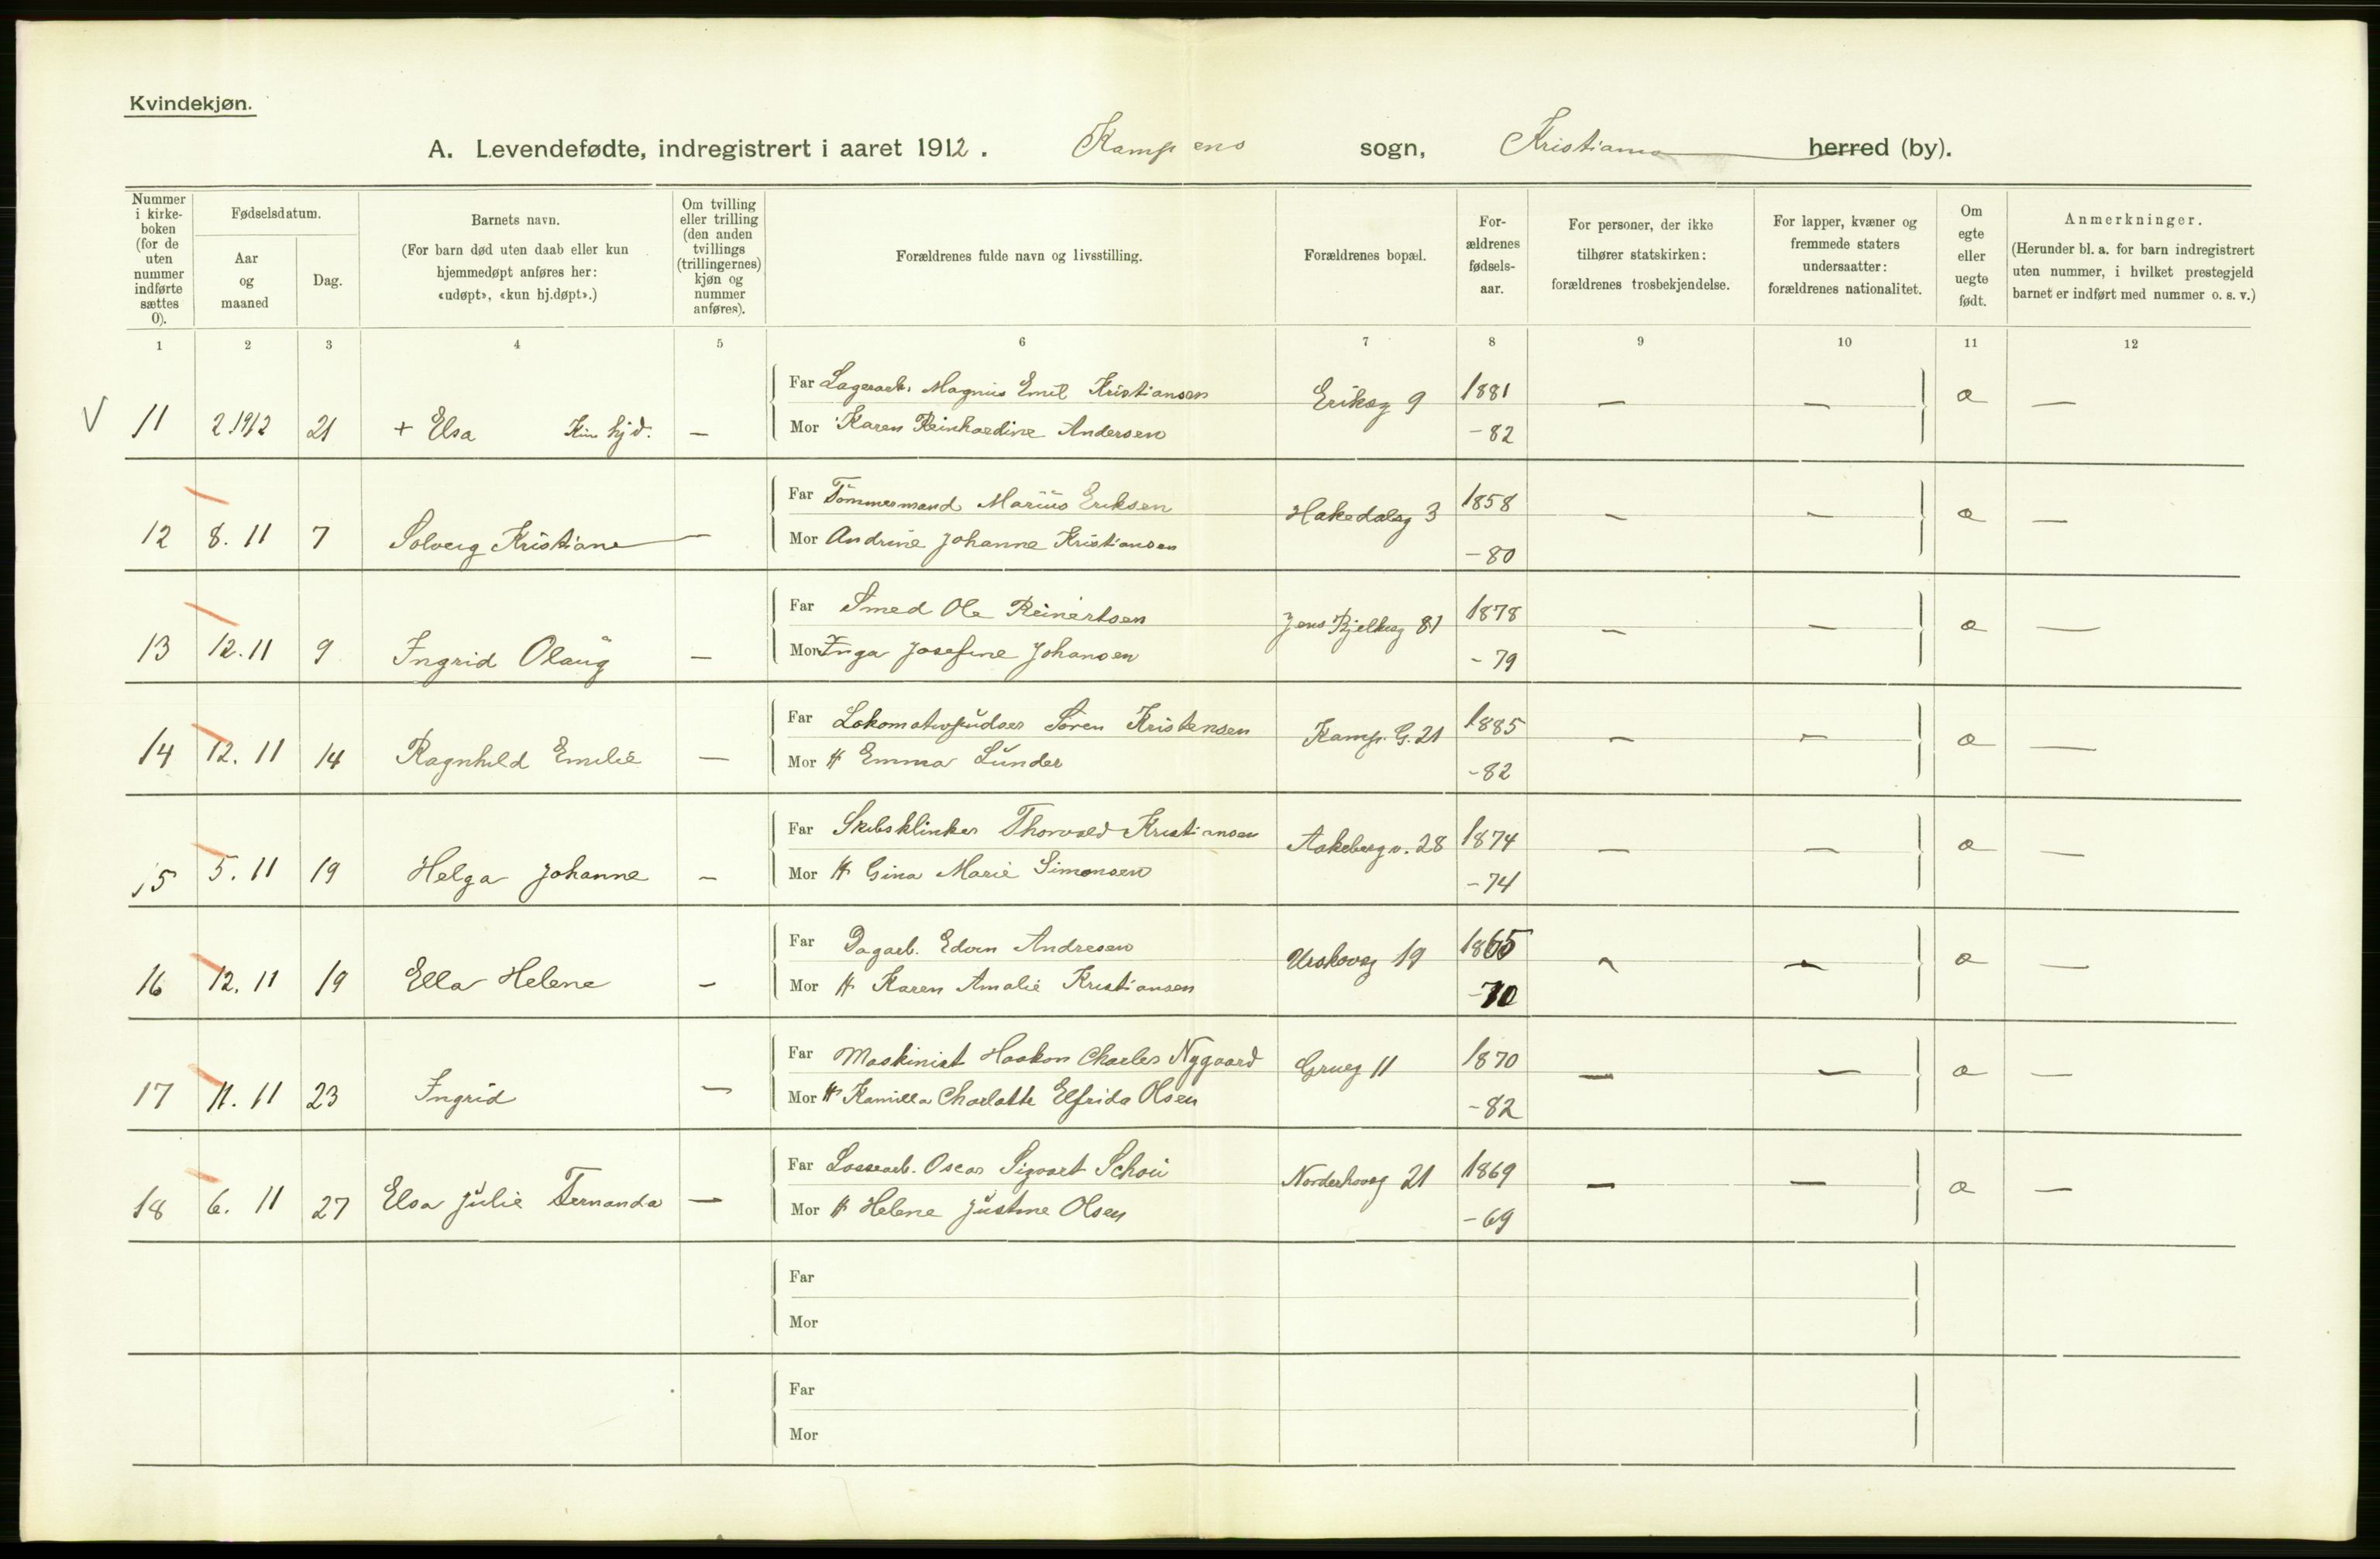 Kvindekjøn.
A. Levendefødte, indregistrert i aaret 1912. Kampens sogn, Kristiania herred (by).
Nummer i kirke-boken (for de uten nummer indførte sættes 0).
Fødselsdatum.
Aar og maaned
Dag.
Barnets navn.
(For barn død uten daab eller kun hjemmedøpt anføres her: «udøpt», «kun hj.døpt».)
Om tvilling eller trilling (den anden tvillings (trillingernes) kjøn og nummer anføres).
Forældrenes fulde navn og livsstilling.
Forældrenes bopæl.
For-ældrenes fødsels-aar.
For personer, der ikke tilhører statskirken: forældrenes trosbekjendelse.
For lapper, kvæner og fremmede staters undersaatter: forældrenes nationalitet.
Om egte eller uegte født.
Anmerkninger.
(Herunder bl. a. for barn indregistrert uten nummer, i hvilket prestegjeld barnet er indført med nummer o. s. v.)
1 2 3 4 5 6 7 8 9 10 11 12
Far Lagerarb. Magnus Emil Kristiansen Eriksg 9 1881
V 11 2.1912 21 + Elsa Kun hjd. — Mor Karen Reinhardine Andersen - 82 — — a —
Far Tömmermand Marius Eriksen Hakedalsg 3 1858
12 8. 11 7 Solveig Kristiane — Mor Andrine Johanne Kristiansen - 80 — — a —
Far Smed Ole Reinertsen Jens Bjelkesg 81 1878
13 12. 11 9 Ingrid Olaug — Mor Inga Josefine Johansen - 79 — — a —
Far Lokomotivpudser Sören Kristensen Kamp. G. 21 1885
14 12. 11 14 Ragnhild Emilie — Mor H Emma Lunder - 82 — — a —
Far Skibsklinker Thorvald Kristiansen Aakebergv. 28 1874
15 5. 11 19 Helga Johanne — Mor H Gina Marie Simonsen - 74 — — a —
Far Dagarb. Edvin Andresen Urskovg 19 1865
16 12. 11 19 Ella Helene — Mor H Karen Amalie Kristiansen - 70 — — a —
Far Maskinist Haakon Charles Nygaard Grueg 11 1870
17 11. 11 23 Ingrid — Mor H Kamilla Charlotte Elfrida Olsen - 82 — — a —
Far Lossearb. Oscar Sigvart Schou Norderhovg 21 1869
18 6. 11 27 Elsa Julie Fernanda — Mor H Helene Justine Olsen - 69 — — a —
Far
Mor
Far
Mor